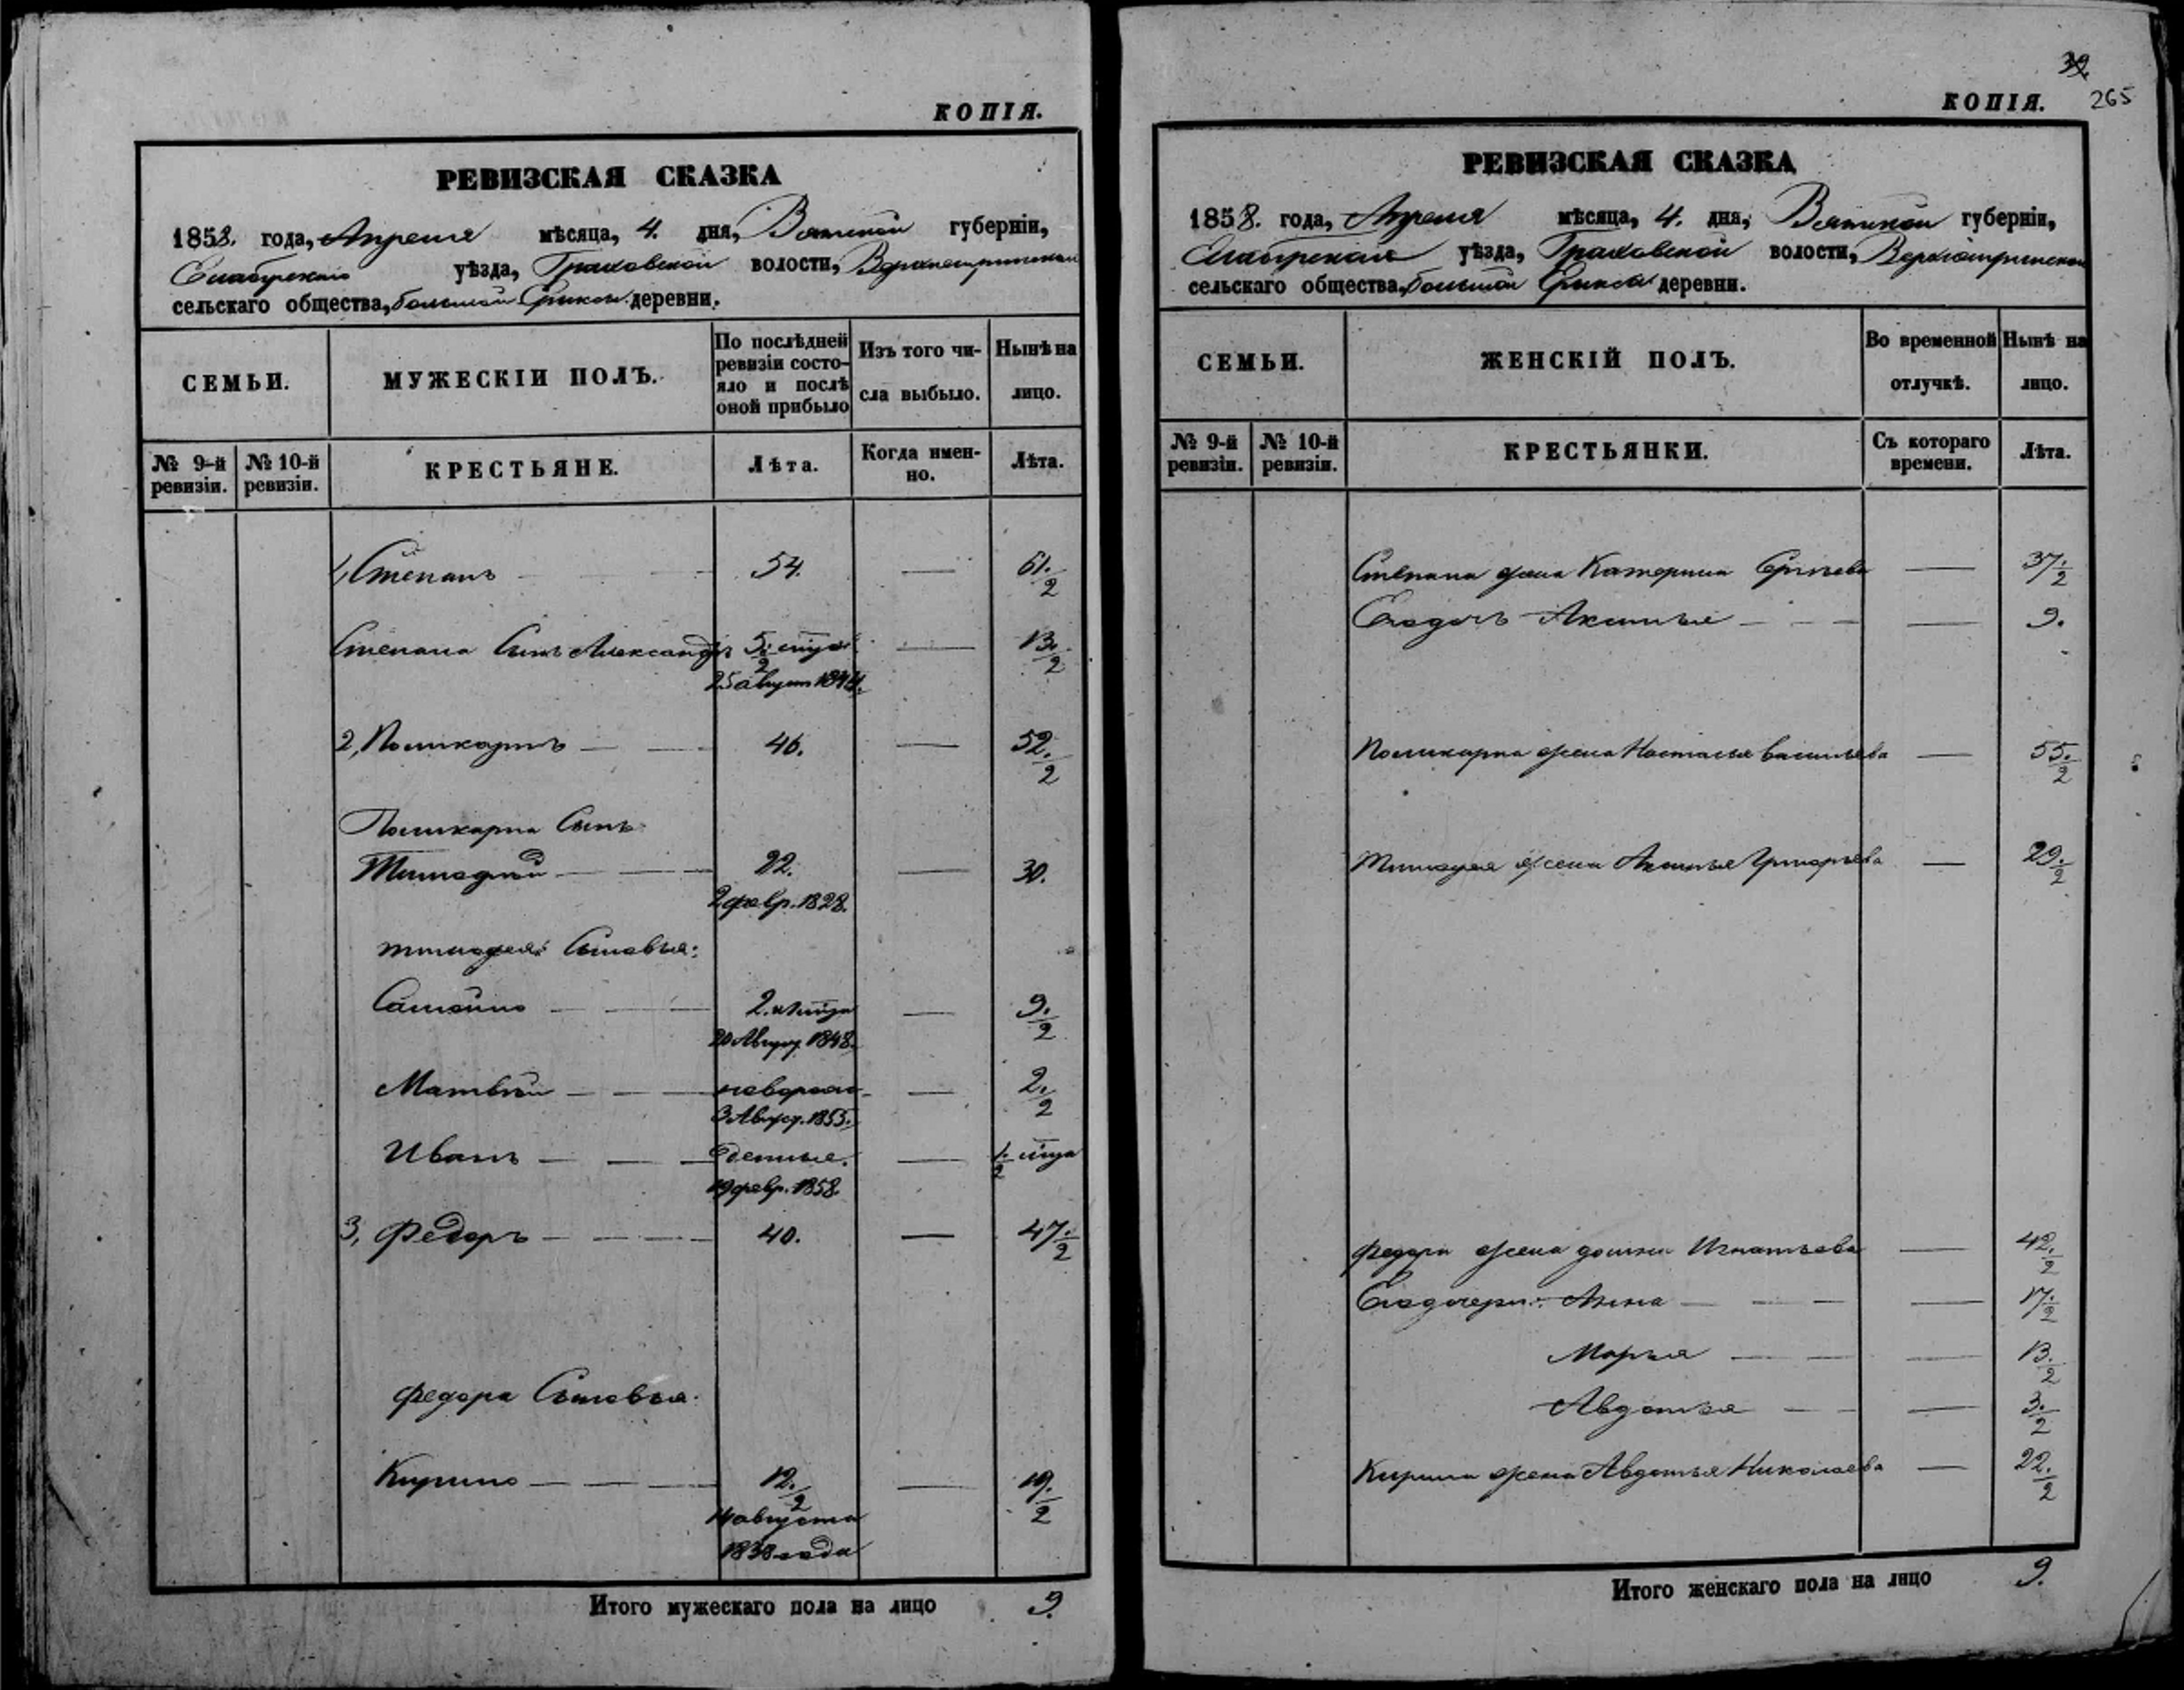 КОПІЯ.
РЕВИЗСКАЯ СКАЗКА
1858. года, Апреля мѣсяца, 4. дня, Вятской губерніи,
Елабугскаго уѣзда, Граховской волости,
сельскаго общества, большой деревни.
СЕМЬИ.
МУЖЕСКІЙ ПОЛЪ.
По послѣдней ревизіи состояло и послѣ оной прибыло
Изъ того числа выбыло.
Нынѣ на лицо.
№ 9-й ревизіи.
№ 10-й ревизіи.
КРЕСТЬЯНЕ.
Лѣта.
Когда именно.
Лѣта.
1, Степанъ — — 54. — 61. 1/2
Степана Сынъ Александръ 5. 1/2 — 13. 1/2
25 август 1844.
2, Поликарпъ — — 46. — 52. 1/2
Поликарпа Сынъ
Тимофей — — 22. — 30.
2 февр. 1828.
тимофея Сыновья:
Самойло — — 2. — 9. 1/2
20 Август. 1848.
Матвѣй — — — 2. 1/2
3 Август. 1855.
Иванъ — — —
19 февр. 1858.
3, Федоръ — — — 40. — 47. 1/2
федора Сыновья.
Кирило — — 12. 1/2 — 19. 1/2
14 августа
1838 года
Итого мужескаго пола на лицо 9.
39
КОПІЯ. 265
РЕВИЗСКАЯ СКАЗКА
1858. года, Апреля мѣсяца, 4. дня, Вятской губерніи,
Елабугскаго уѣзда, Граховской волости,
сельскаго общества, большой деревни.
СЕМЬИ.
ЖЕНСКІЙ ПОЛЪ.
Во временной отлучкѣ.
Нынѣ на лицо.
№ 9-й ревизіи.
№ 10-й ревизіи.
КРЕСТЬЯНКИ.
Съ котораго времени.
Лѣта.
Степана жена Катерина — 37. 1/2
Его дочь Аксинья — — — 9.
Поликарпа жена Настасья Васильева — 55. 1/2
Тимофея жена Аксинья Григорьева — 29. 1/2
федора жена Игнатьева — 42. 1/2
Его дочери: Анна — — — 17. 1/2
Марья — — — 13. 1/2
Авдотья — — — 3. 1/2
Кирила жена Авдотья Николаева — 22. 1/2
Итого женскаго пола на лицо 9.